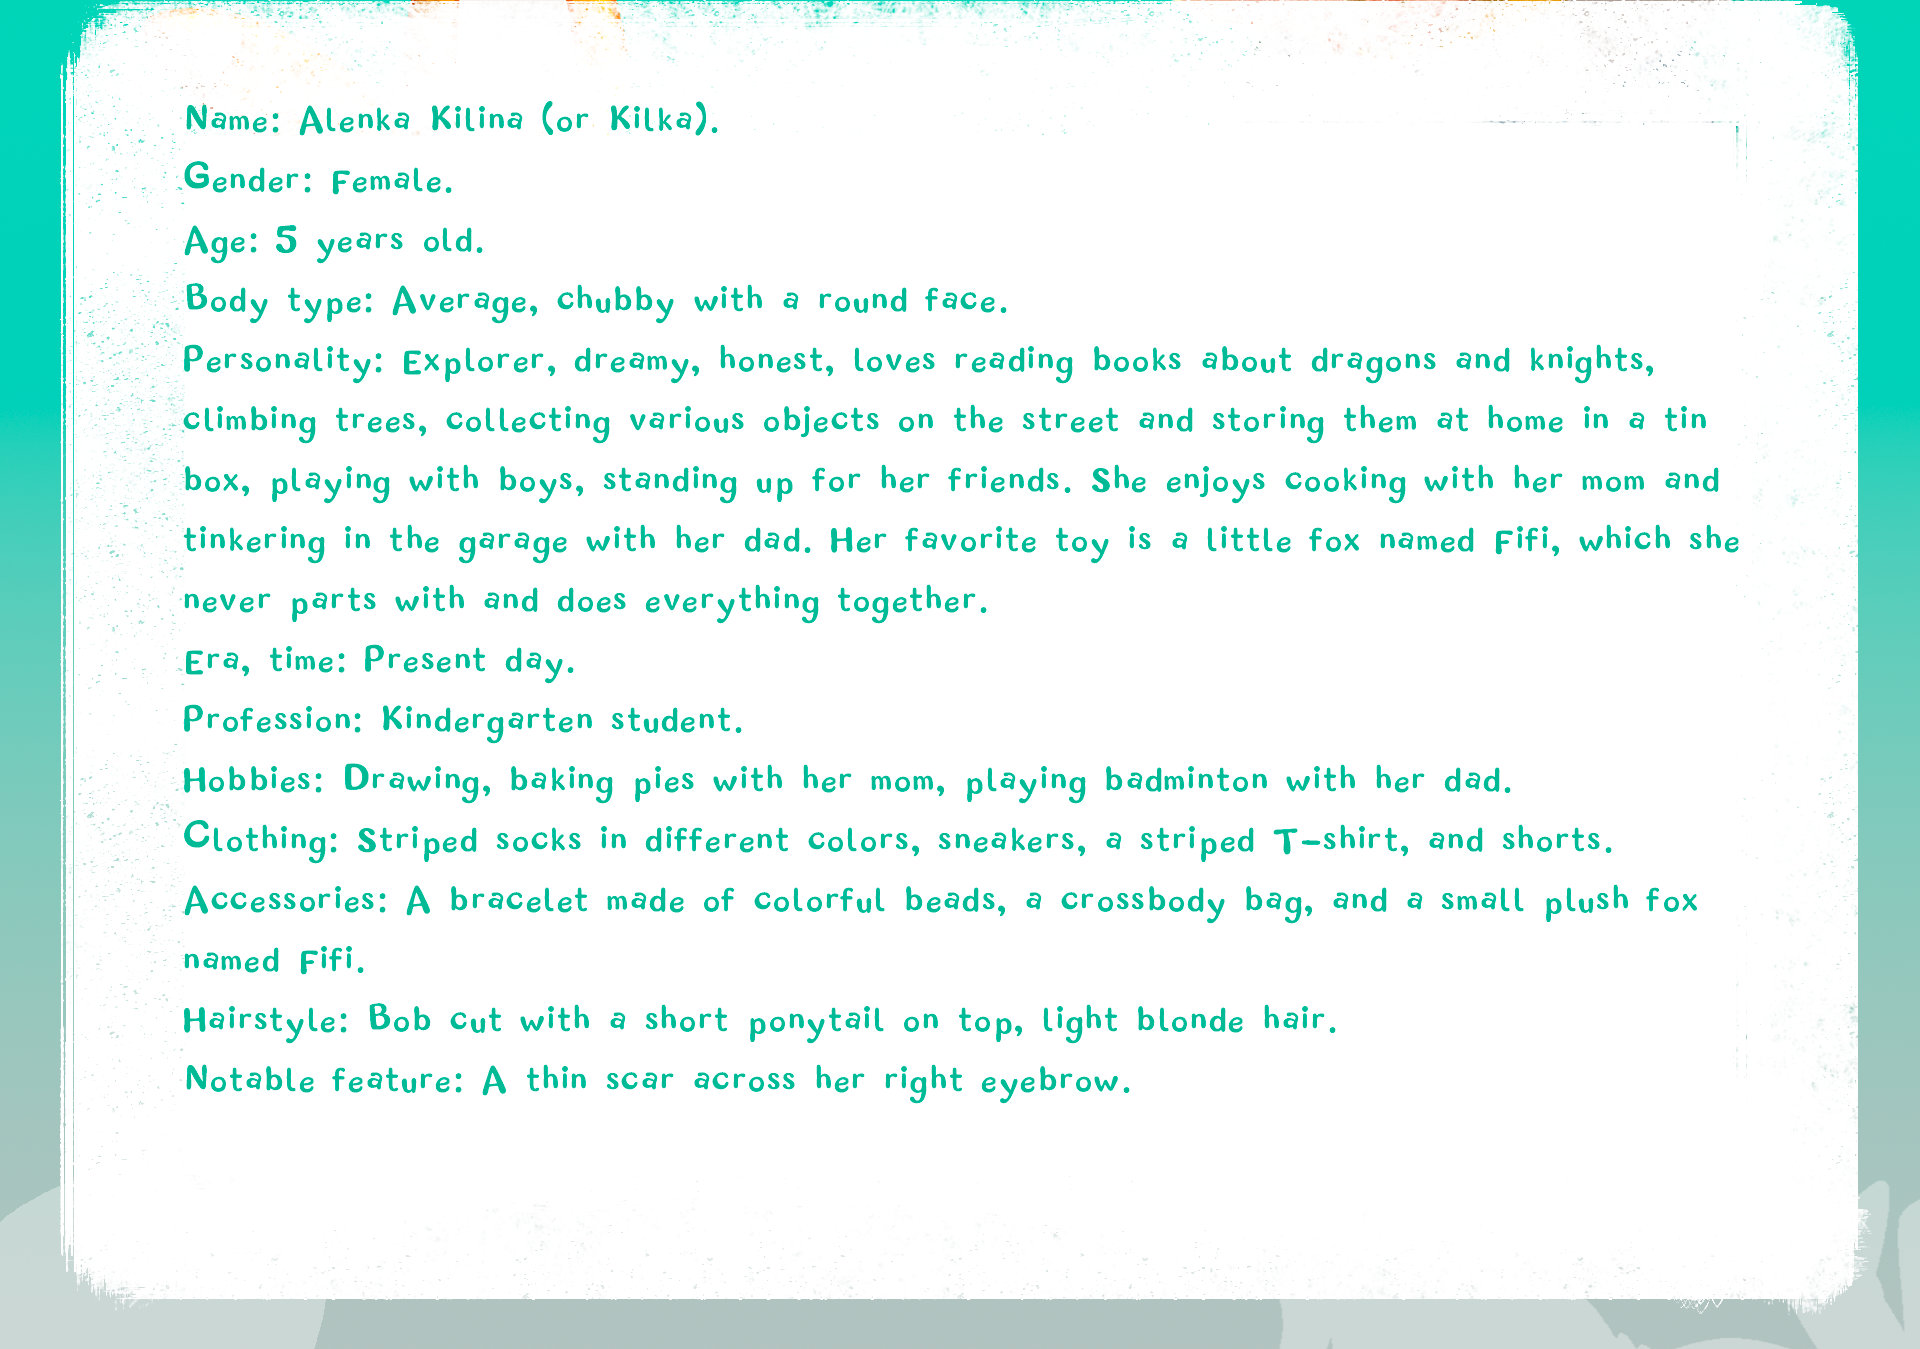 Name: Alenka Kilina (or Kilka).
Gender: Female.
Age: 5 years old.
Body type: Average, chubby with a round face.
Personality: Explorer, dreamy, honest, loves reading books about dragons and knights,
climbing trees, collecting various objects on the street and storing them at home in a tin
box, playing with boys, standing up for her friends. She enjoys cooking with her mom and
tinkering in the garage with her dad. Her favorite toy is a little fox named Fifi, which she
never parts with and does everything together.
Era, time: Present day.
Profession: Kindergarten student.
Hobbies: Drawing, baking pies with her mom, playing badminton with her dad.
Clothing: Striped socks in different colors, sneakers, a striped T-shirt, and shorts.
Accessories: A bracelet made of colorful beads, a crossbody bag, and a small plush fox
named Fifi.
Hairstyle: Bob cut with a short ponytail on top, light blonde hair.
Notable feature: A thin scar across her right eyebrow.